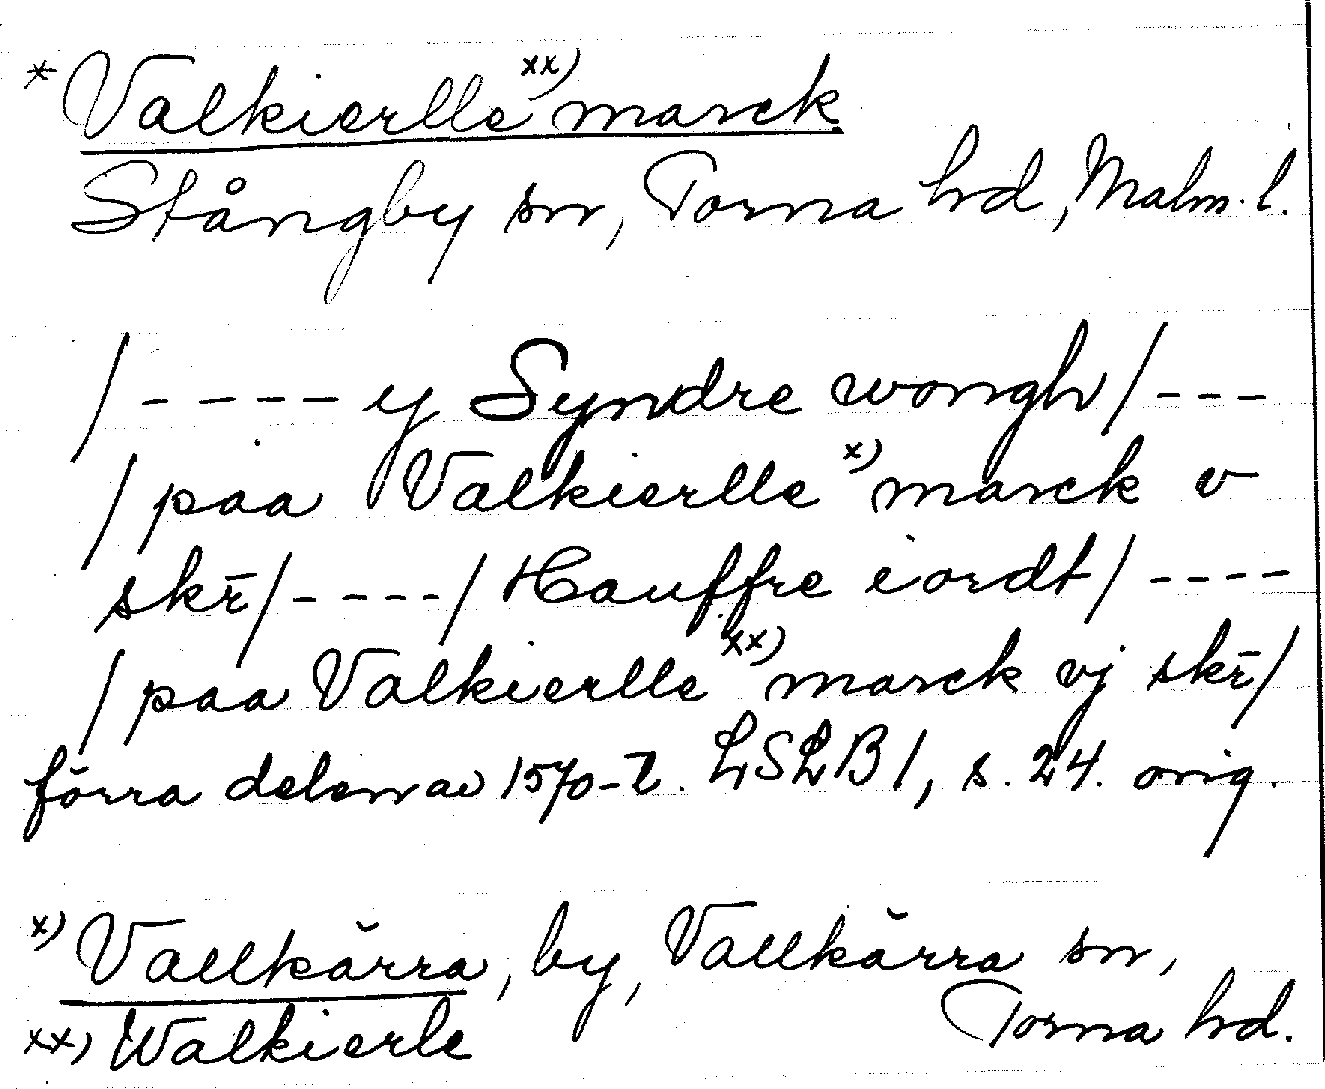 * Valkierlle xx) marck
Stångby sn, Torna hd, Malm. l.
/---- y Syndre wongh/---
/paa Valkierlle x) marck v
skr̄/----/Hauffre iordt/----
/paa Valkierlle xx) marck vj skr̄/
förra delen av 1570-t. LSLB 1, s. 24. orig.
x) Vallkärra, by, Vallkärra sn,
Torna hd.
xx) Walkierle